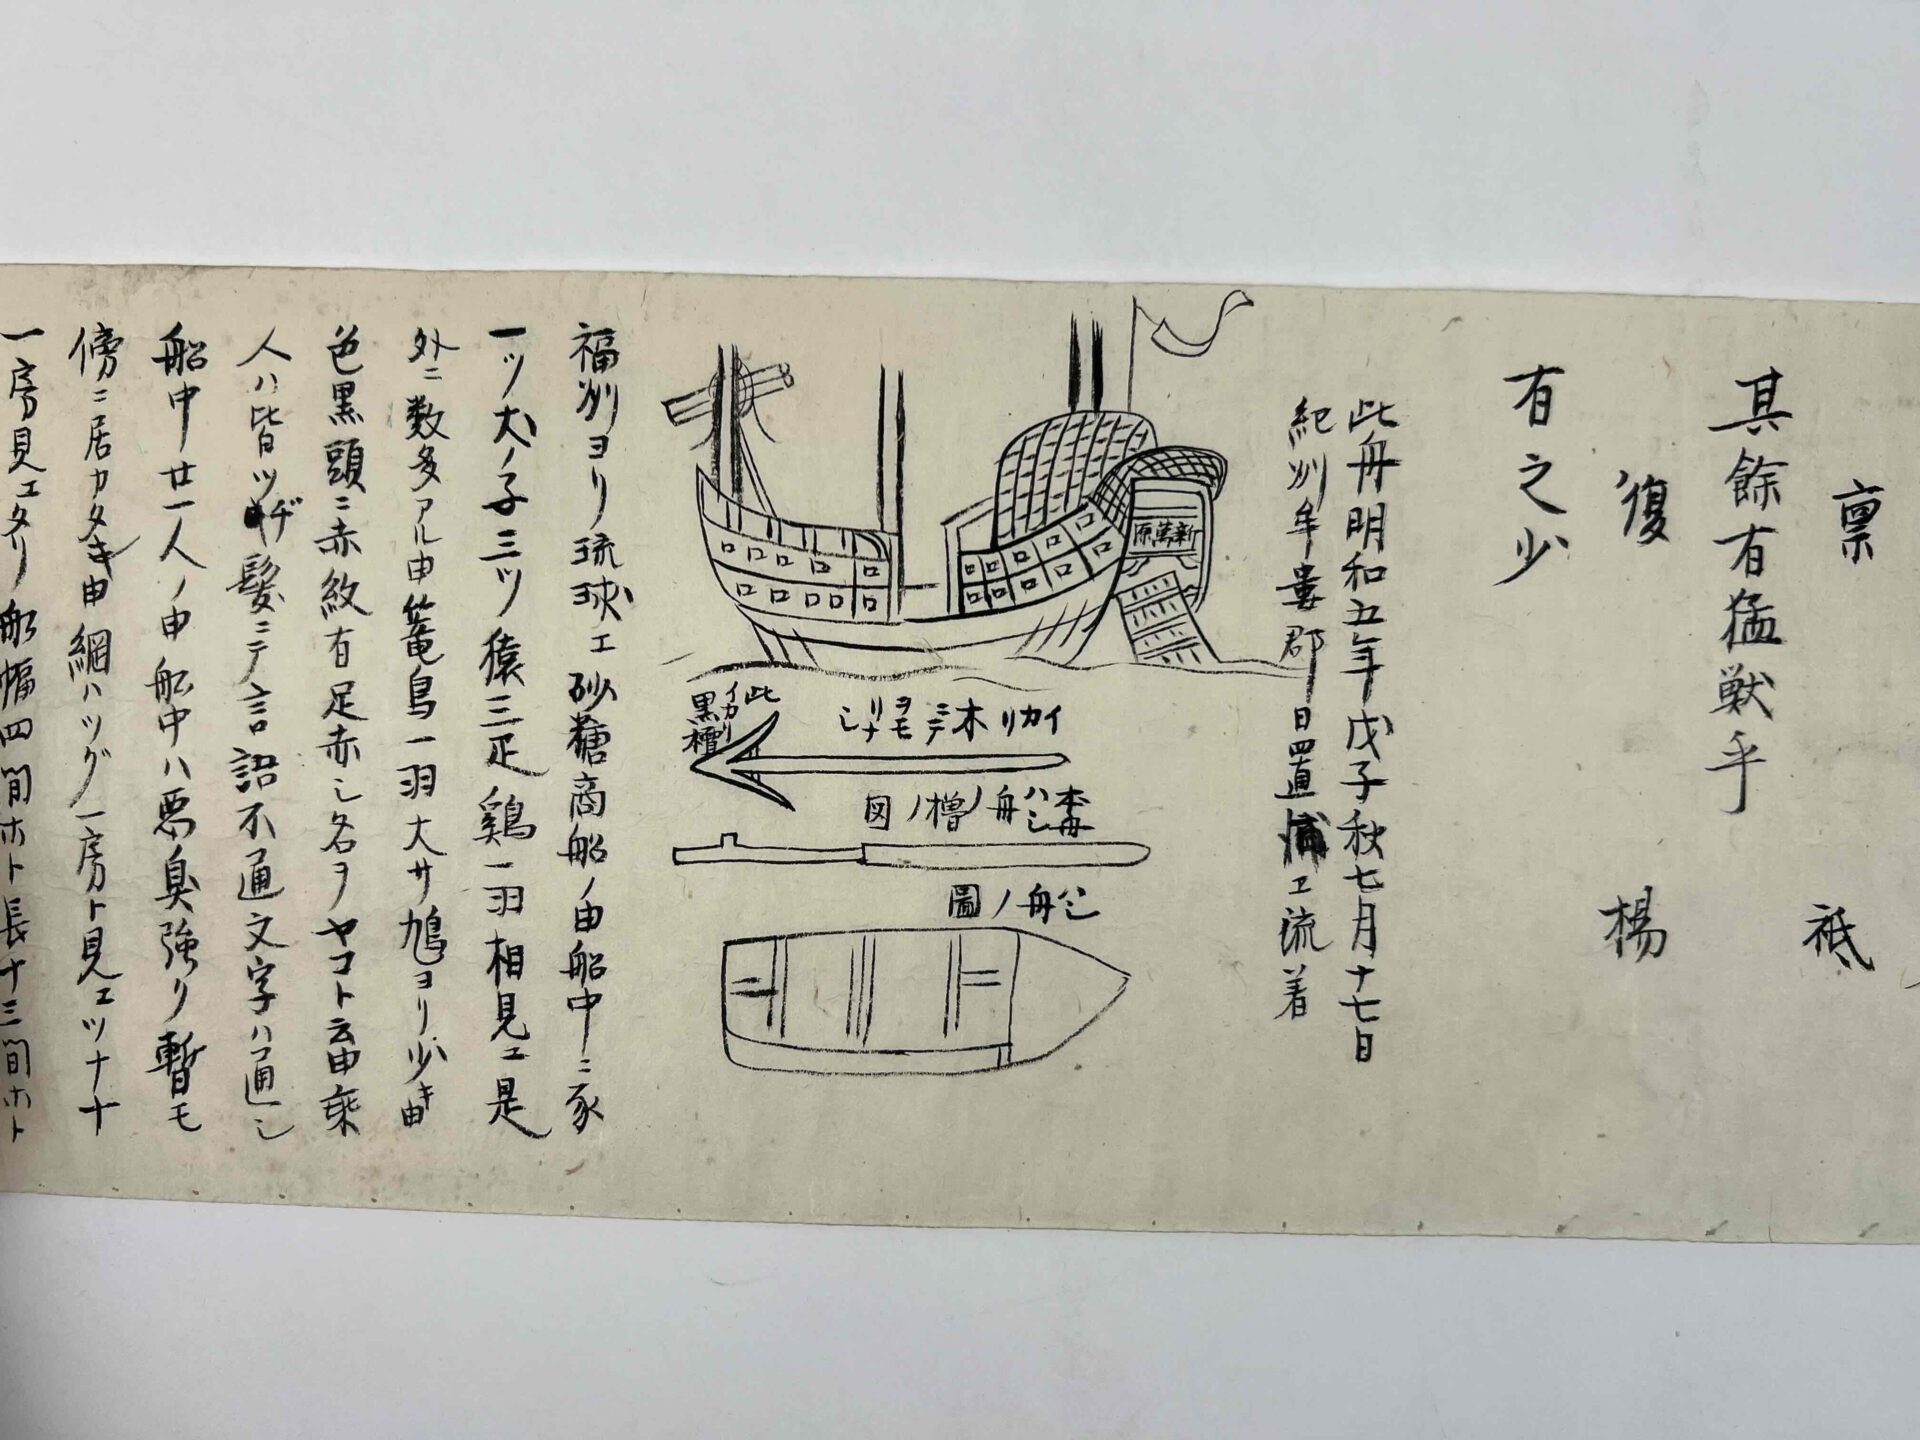 稟 祗
其餘有猛獣乎
復 楊
有之少
此舟明和五年戊子秋七月十七日
紀州牟婁郡日置浦エ流着
新萬原
イカリ木ニテヲモリナシ
此イカリ黒檀
本舟ハシ舟ノ櫓ノ図
ハシ舟ノ圖
福州ヨリ琉球エ砂糖商船ノ由船中ニ豕
一ツ犬ノ子三ツ猿三疋鶏一羽相見エ是
外ニ数多アル由篭鳥一羽大サ鳩ヨリ少キ由
色黒頭ニ赤紋有足赤シ名ヲヤコト云由乗
人ハ皆ツヂ髪ニテ言語不通文字ハ通シ
船中廿一人ノ由船中ハ悪臭強リ暫モ
傍ニ居カタキ由網ハツグ一房ト見エツナナ
一房見エタリ船幅四間ホト長十三間ホト